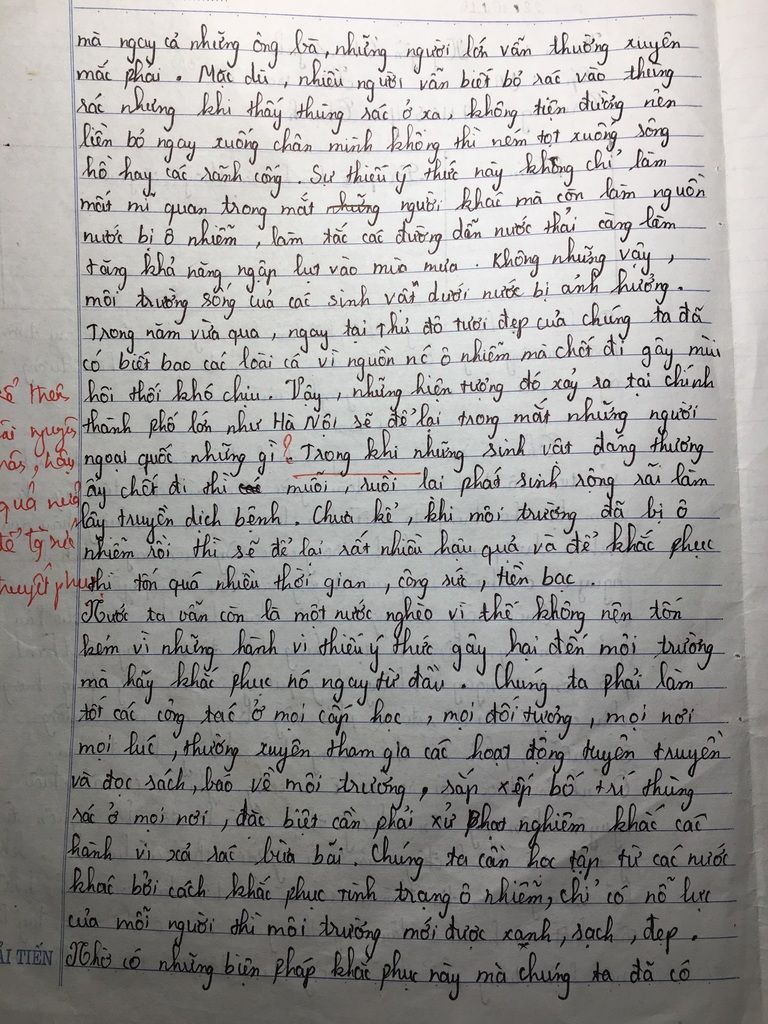 mà ngay cả những ông bà, những người lớn vẫn thường xuyên
mắc phải. Mặc dù, nhiều người vẫn biết bỏ rác vào thùng
rác nhưng khi thấy thùng rác ở xa, không tiện đường nên
liền bỏ ngay xuống chân mình không thì ném tọt xuống sông
hồ hay các rãnh cống. Sự thiếu ý thức này không chỉ làm
mất mĩ quan trong mắt những người khác mà còn làm nguồn
nước bị ô nhiễm, làm tắc các đường dẫn nước thải càng làm
tăng khả năng ngập lụt vào mùa mưa. Không những vậy,
môi trường sống của các sinh vật dưới nước bị ảnh hưởng.
Trong năm vừa qua, ngay tại thủ đô tươi đẹp của chúng ta đã
có biết bao các loài cá vì nguồn nc ô nhiễm mà chết đi gây mùi
hôi thối khó chịu. Vậy, những hiện tượng đó xảy ra tại chính
thành phố lớn như Hà Nội sẽ để lại trong mắt những người
ngoại quốc những gì? Trong khi những sinh vật đáng thương
ấy chết đi thì các muỗi, ruồi lại phát sinh rộng rãi làm
lây truyền dịch bệnh. Chưa kể, khi môi trường đã bị ô
nhiễm rồi thì sẽ để lại rất nhiều hậu quả và để khắc phục
thì tốn quá nhiều thời gian, công sức, tiền bạc.
Nước ta vẫn còn là một nước nghèo vì thế không nên tốn
kém vì những hành vi thiếu ý thức gây hại đến môi trường
mà hãy khắc phục nó ngay từ đầu. Chúng ta phải làm
tốt các công tác ở mọi cấp học, mọi đối tượng, mọi nơi
mọi lúc, thường xuyên tham gia các hoạt động tuyên truyền
và đọc sách, báo về môi trường, sắp xếp bố trí thùng
rác ở mọi nơi, đặc biệt cần phải xử phạt nghiêm khắc các
hành vi xả rác bừa bãi. Chúng ta cần học tập từ các nước
khác bởi cách khắc phục tình trạng ô nhiễm, chỉ có nỗ lực
của mỗi người thì môi trường mới được xanh, sạch, đẹp.
Nhờ có những biện pháp khắc phục này mà chúng ta đã có
kể thêm
nguyên
hậu
quả nữa
để
thuyết phục
ẢI TIẾN